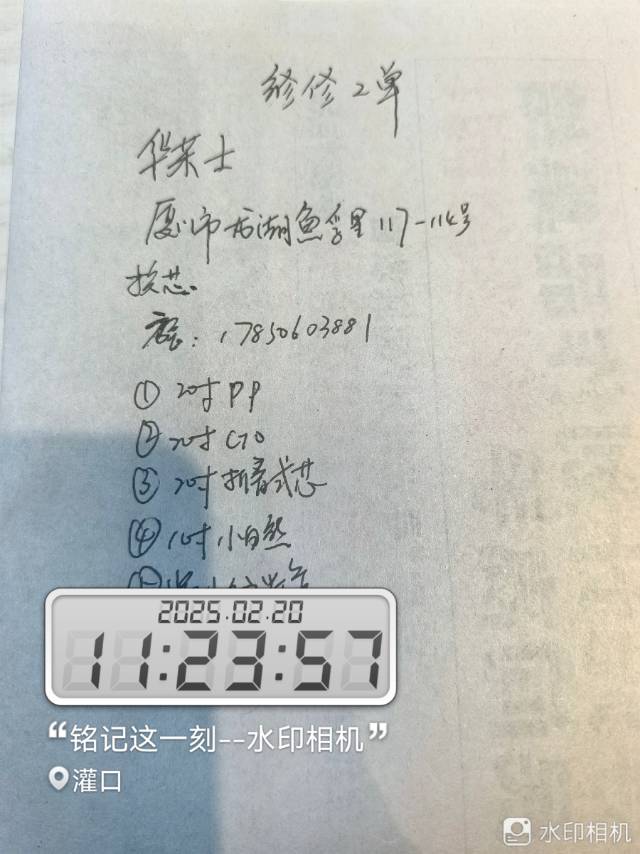 修2单
华莱士
厦门市湖里117-114号
换芯
电话:17850603881
① 20寸PP
② 20寸CTO
③ 20寸折叠式芯
④ 10寸小白然
2025.02.20
11:23:57
“铭记这一刻--水印相机”
灌口
水印相机